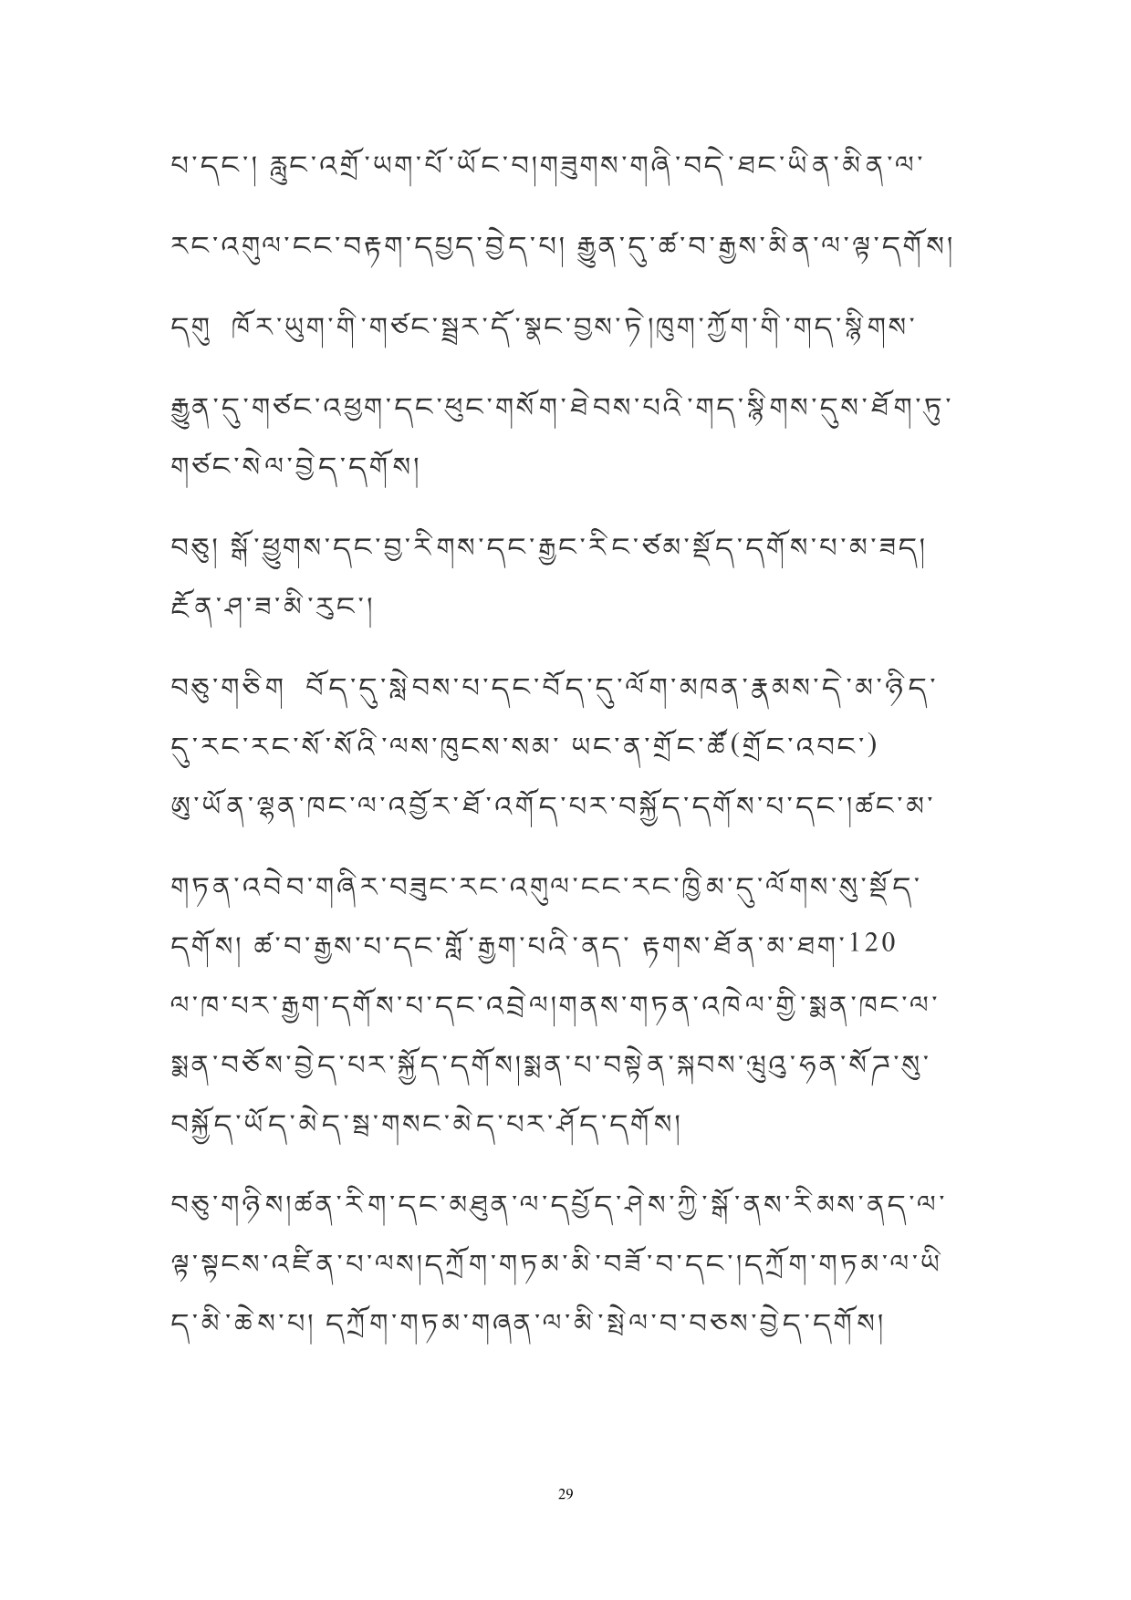 པ་དང་། རླུང་འགྲོ་ཡག་པོ་ཡོང་བ།གཟུགས་གཞི་བདེ་ཐང་ཡིན་མིན་ལ་
རང་འགུལ་ངང་བརྟག་དཔྱད་བྱེད་པ། རྒྱུན་དུ་ཚ་བ་རྒྱས་མིན་ལ་ལྟ་དགོས།
དགུ ཁོར་ཡུག་གི་གཙང་སྦྲར་དོ་སྣང་བྱས་ཏེ།ཁུག་ཀྱོག་གི་གད་སྙིགས་
རྒྱུན་དུ་གཙང་འཕྱག་དང་ཕུང་གསོག་ཐེབས་པའི་གད་སྙིགས་དུས་ཐོག་ཏུ་
གཙང་སེལ་བྱེད་དགོས།
བཅུ། སྒོ་ཕྱུགས་དང་བྱ་རིགས་དང་རྒྱང་རིང་ཙམ་སྡོད་དགོས་པ་མ་ཟད།
རྗོན་ཤ་ཟ་མི་རུང་།
བཅུ་གཅིག བོད་དུ་སླེབས་པ་དང་བོད་དུ་ལོག་མཁན་རྣམས་དེ་མ་ཉིད་
དུ་རང་རང་སོ་སོའི་ལས་ཁུངས་སམ་ ཡང་ན་གྲོང་ཚོ(གྲོང་འབང་)
ཨུ་ཡོན་ལྷན་ཁང་ལ་འབྱོར་ཐོ་འགོད་པར་བསྐྱོད་དགོས་པ་དང་།ཚང་མ་
གཏན་འབེབ་གཞིར་བཟུང་རང་འགུལ་ངང་རང་ཁྱིམ་དུ་ལོགས་སུ་སྡོད་
དགོས། ཚ་བ་རྒྱས་པ་དང་གློ་རྒྱག་པའི་ནད་ རྟགས་ཐོན་མ་ཐག་120
ལ་ཁ་པར་རྒྱག་དགོས་པ་དང་འབྲེལ།གནས་གཏན་འཁེལ་གྱི་སྨན་ཁང་ལ་
སྨན་བཅོས་བྱེད་པར་སྐྱོད་དགོས།སྨན་པ་བསྟེན་སྐབས་ཝུའུ་ཧན་སོཊ་སུ་
བསྐྱོད་ཡོད་མེད་སྦ་གསང་མེད་པར་ཤོད་དགོས།
བཅུ་གཉིས།ཚན་རིག་དང་མཐུན་ལ་དཔྱོད་ཤེས་ཀྱི་སྒོ་ནས་རིམས་ནད་ལ་
ལྟ་སྟངས་འཛིན་པ་ལས།དཀྲོག་གཏམ་མི་བཟོ་བ་དང་།དཀྲོག་གཏམ་ལ་ཡི
ད་མི་ཆེས་པ། དཀྲོག་གཏམ་གཞན་ལ་མི་སྤེལ་བ་བཅས་བྱེད་དགོས།
29